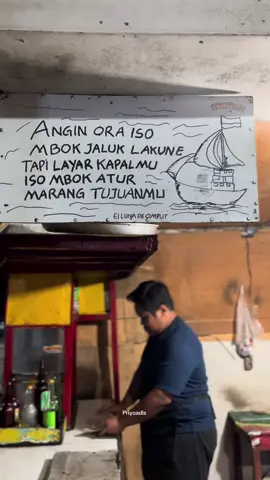 ANGIN ORA ISO
MBOK JALUK LAKUNE
TAPI LAYAR KAPALMU
ISO MBOK ATUR
MARANG TUJUANMU
Priyoadis